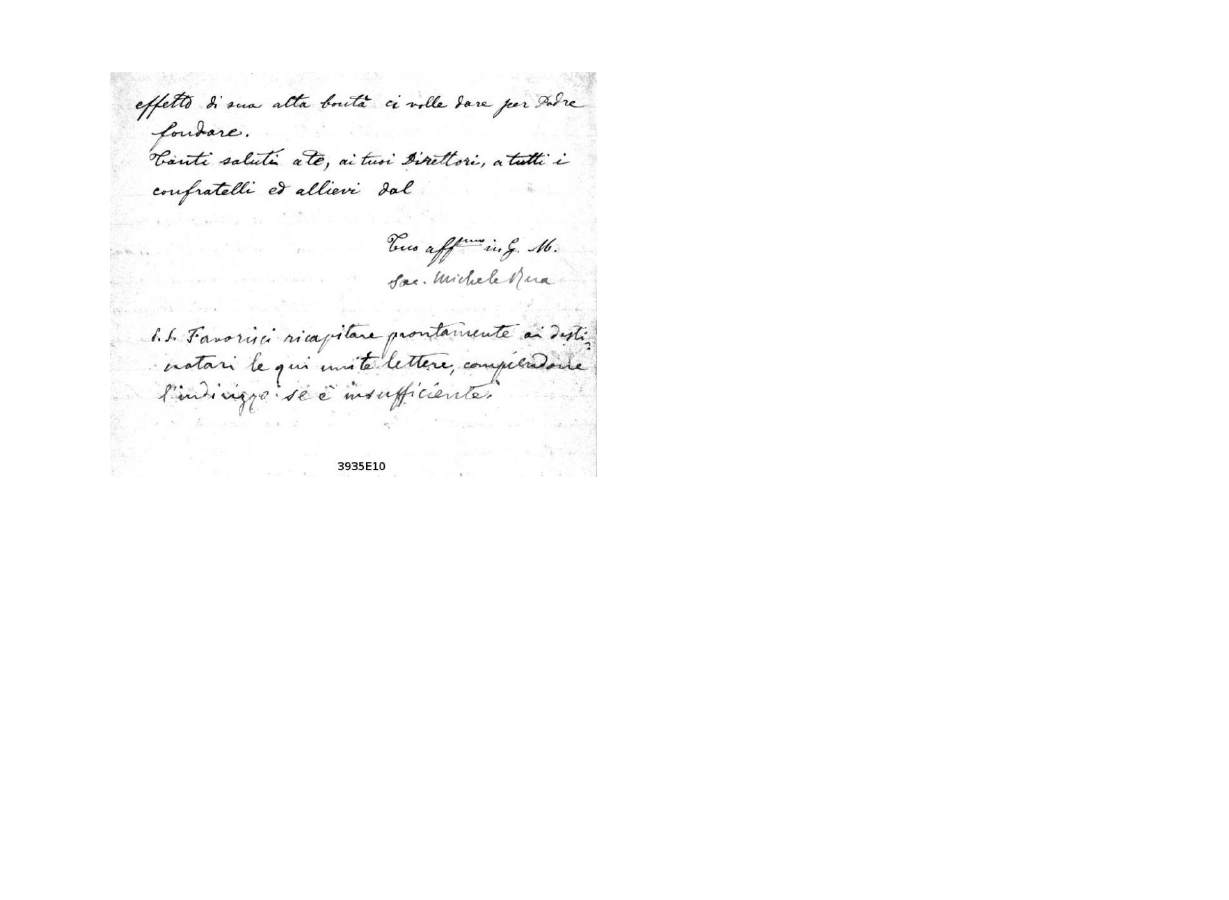 effetto di sua alta bontà ci volle dare per Padre
fondare.
Tanti saluti a te, ai tuoi Direttori, a tutti i
confratelli ed allievi dal
Tuo aff.mo in G. M.
Sac. Michele Rua
P.S. Favorisci ricapitare prontamente ai desti-
natari le qui unite lettere, compiendone
l'indirizzo se è insufficiente.
3935E10